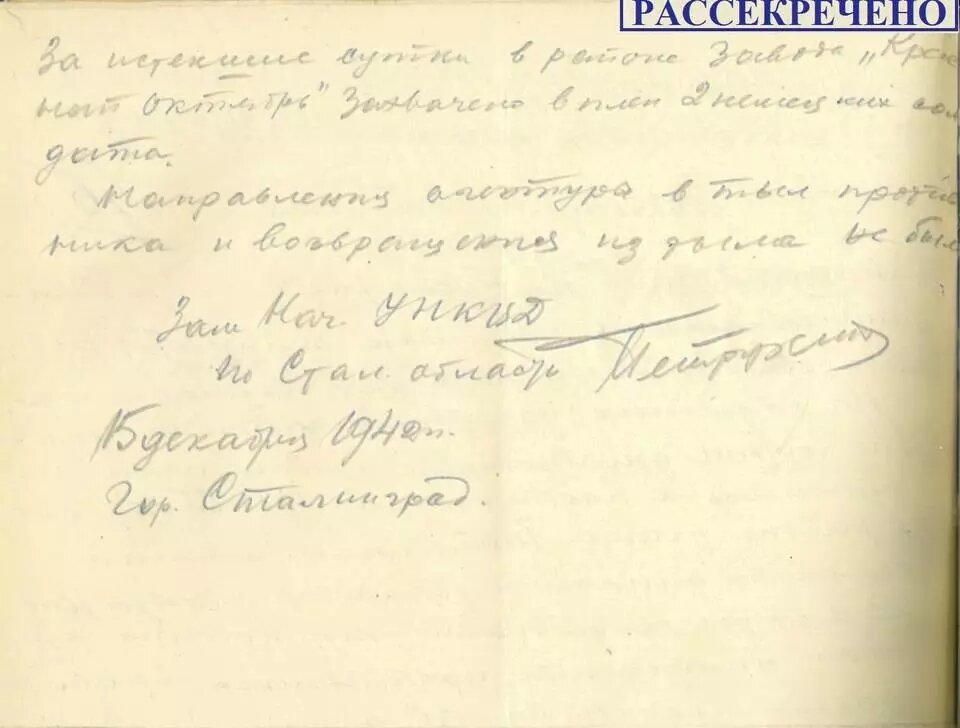 РАССЕКРЕЧЕНО
За истекшие сутки в районе завода „Крас
ный Октябрь" захвачено в плен 2 немецких сол
дата.
Направления агентура в тыл против
ника и возвращения из тыла не был
Зам Нач. УНКВД
по Стал. области Петрухин
15 декабря 1942 г.
Гор. Сталинград.